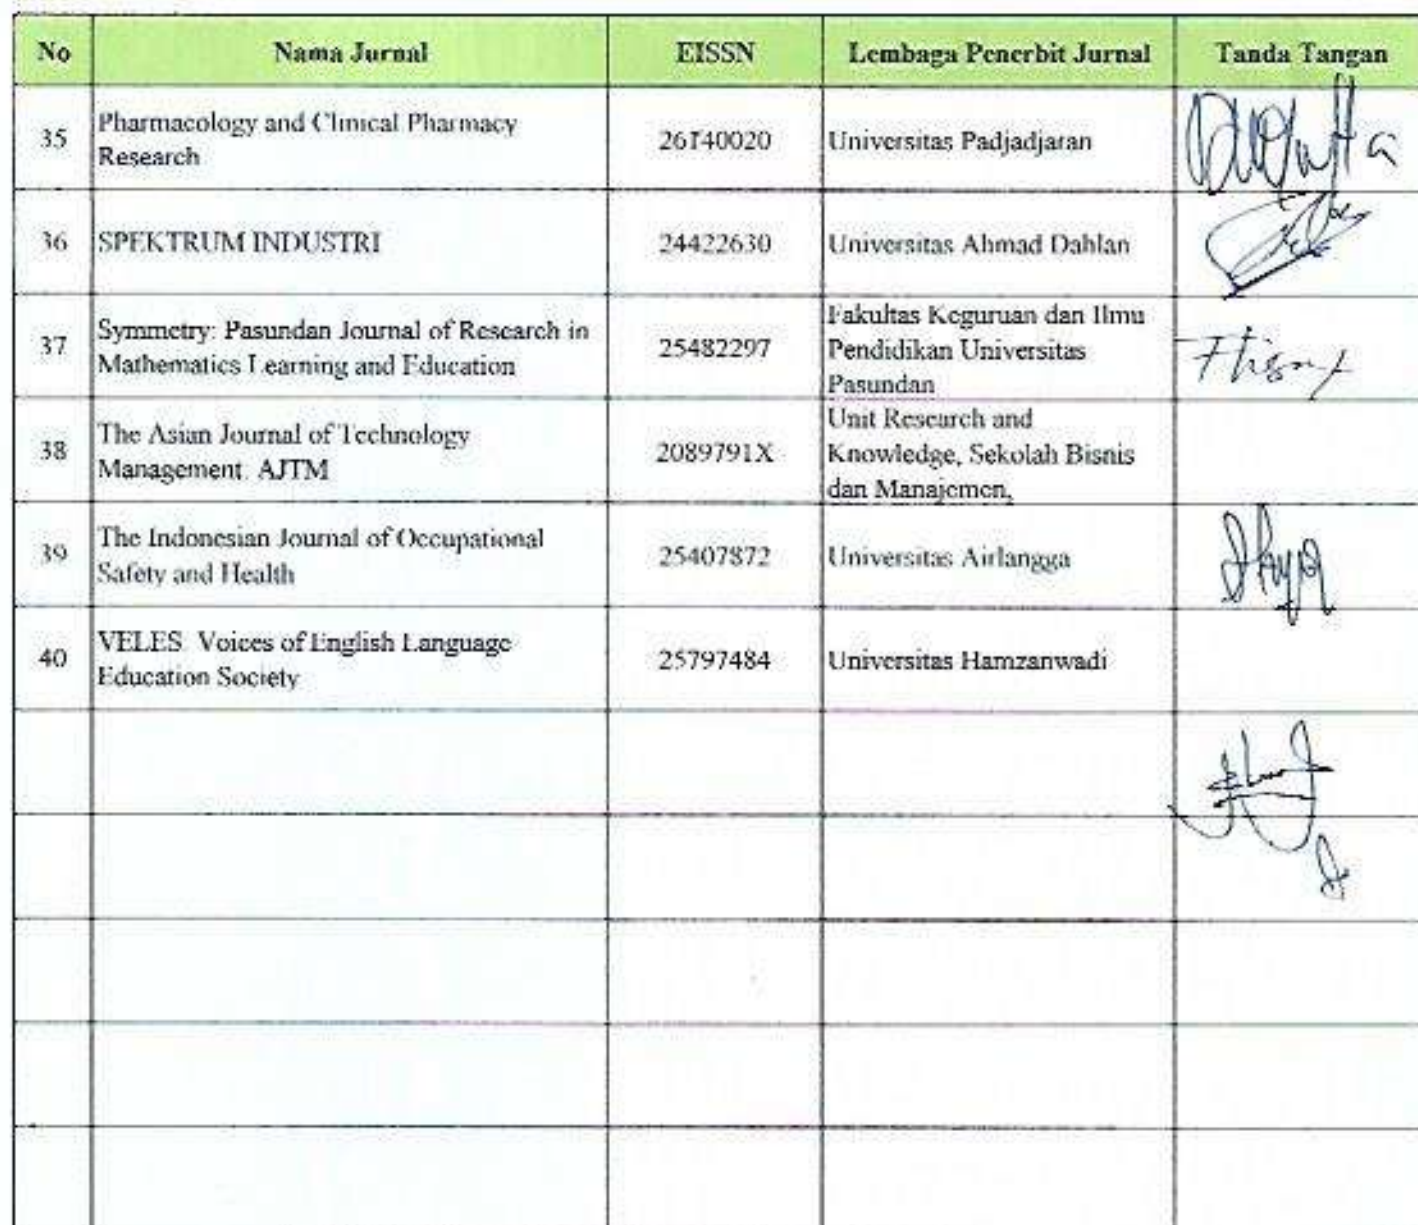 No Nama Jurnal EISSN Lembaga Penerbit Jurnal Tanda Tangan
35 Pharmacology and Clinical Pharmacy
Research 26140020 Universitas Padjadjaran
36 SPEKTRUM INDUSTRI 24422630 Universitas Ahmad Dahlan
37 Symmetry: Pasundan Journal of Research in
Mathematics Learning and Education 25482297 Fakultas Keguruan dan Ilmu
Pendidikan Universitas
Pasundan
38 The Asian Journal of Technology
Management. AJTM 2089791X Unit Research and
Knowledge, Sekolah Bisnis
dan Manajemen,
39 The Indonesian Journal of Occupational
Safety and Health 25407872 Universitas Airlangga
40 VELES. Voices of English Language
Education Society 25797484 Universitas Hamzanwadi